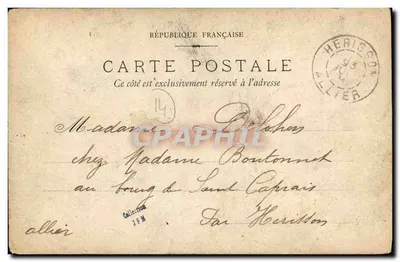 RÉPUBLIQUE FRANÇAISE
CARTE POSTALE
Ce côté est exclusivement réservé à l'adresse
HERISSON
23
ALLIER
14
CPAPHIL
Madame
chez Madame Boutonnet
au bourg de Saint Caprais
Par Herisson
allier
Collection
JPM